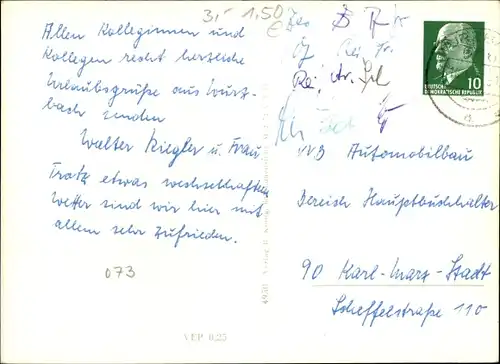 3,- 1,50 €
Allen Kolleginnen und
Kollegen recht herzliche
Urlaubsgrüße aus Wurz-
bach senden
Walter Ziegler u. Frau
Trotz etwas wechselhaften
Wetter sind wir hier mit
allem sehr zufrieden.
073
VEP 0,25
10
DEUTSCHE
DEMOKRATISCHE REPUBLIK
VVB Automobilbau
Bereich Hauptbuchhalter
90 Karl-Marx-Stadt
Scheffelstraße 110